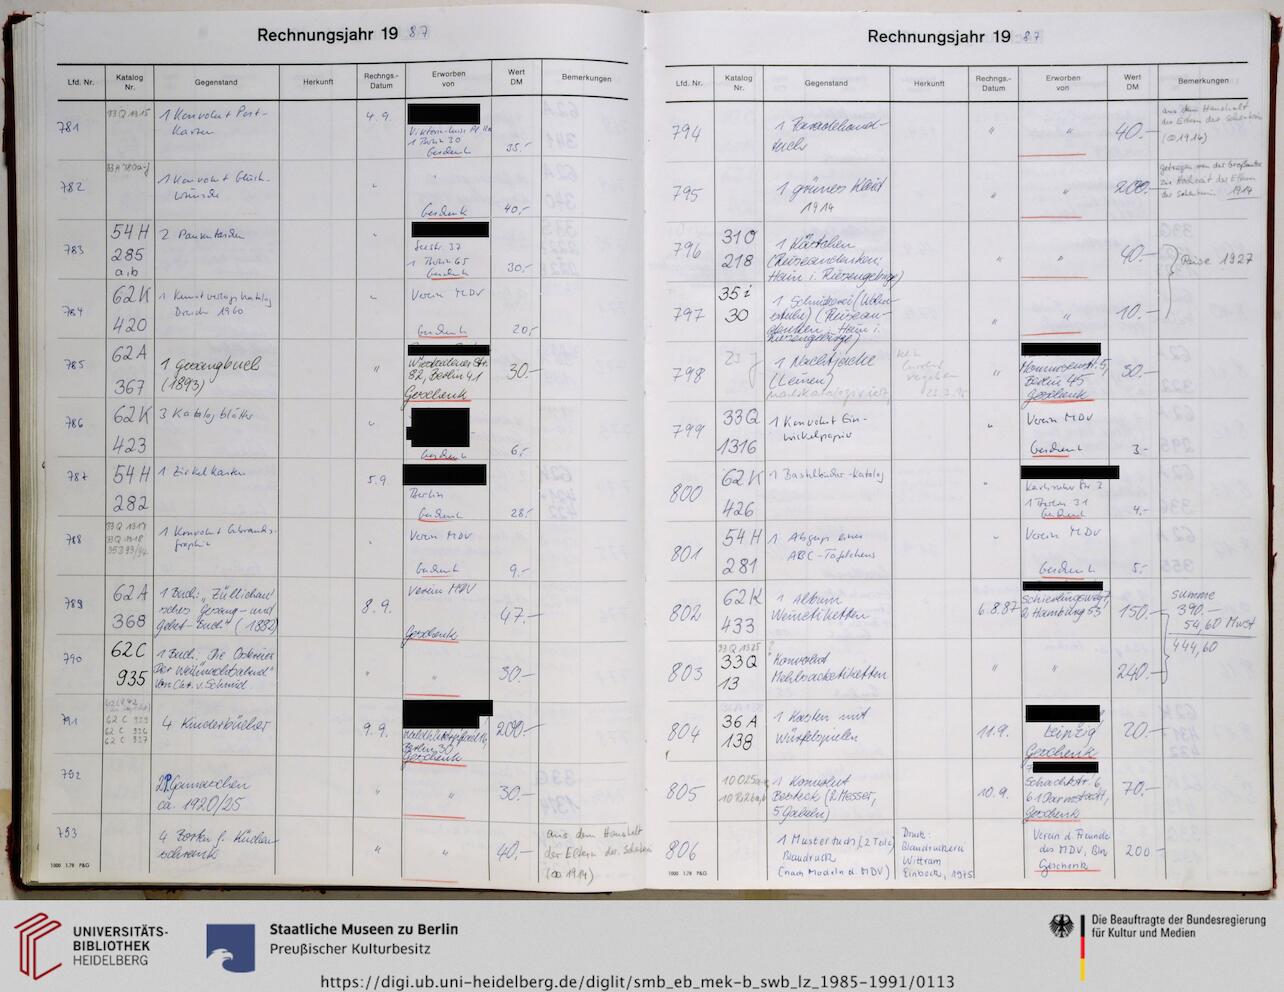 Rechnungsjahr 19 87
Lfd. Nr. Katalog Nr. Gegenstand Herkunft Rechngs.-Datum Erworben von Wert DM Bemerkungen
781 33 Q 1315 1 Konvolut Post-
karten 4.9.
1 Berlin 30
Geschenk 35,-
782 1 Konvolut Glück-
wünsche "
Geschenk 40,-
783 54 H
285
a,b
2 Pausentasten "
Seestr. 37
1 Berlin 65
Geschenk 30,-
784 62 K
420
1 Kunstverlagskatalog
Drucke 1960 "
Verein MDV
Geschenk 20,-
785 62 A
367
1 Gesangbuch
(1893) "
Wiesbadener Str.
82, Berlin 41
Geschenk 30.-
786 62 K
423
3 Katalogblätter "
Geschenk 6,-
787 54 H
282
1 Zirkelkasten 5.9.
Berlin
Geschenk 28,-
788 33 Q 1317
33 Q 1318
35 D 93/94
1 Konvolut Gebrauchs-
graphik "
Verein MDV
Geschenk 9,-
789 62 A
368
1 Buch: "Züllichau
sches Gesang- und
Gebet-Buch" (1882) 8.9.
Verein MDV
Geschenk 47.-
790 62 C
935
1 Buch: Die Ostereier
Der Weihnachtsabend
von Chr. v. Schmid. " " 30.-
791
62 C 935
62 C 936
62 C 937
4 Kinderbücher 9.9.
Berlin 30,
Geschenk 200.-
792
2 P Gamaschen
ca. 1920/25 " " 30.-
793
4 Borten f. Küchen-
schrank " " 40,-
aus dem Haushalt
der Eltern der Schenkerin
(∞ 1914)
1000 1.79 P&G
Rechnungsjahr 19 87
Lfd. Nr. Katalog Nr. Gegenstand Herkunft Rechngs.-Datum Erworben von Wert DM Bemerkungen
794
1 Paradehand-
tuch " " 40.-
aus dem Haushalt
der Eltern der Schenkerin
(∞ 1914)
795
1 grünes Kleid
1914 " " 200.-
getragen von der Großmutter
zur Hochzeit der Eltern
der Schenkerin 1914
796 31 O
218
1 Kästchen
(Reiseandenken:
Hain i. Riesengebirge) " " 40.-
Reise 1927
797 35 i
30
1 Schnitzerei
(Reisean-
denken: Hain i.
Riesengebirge) " " 10.-
798 23 j
1 Nachtjacke
(Leinen) "
Mommsenstr. 5,
Berlin 45
Geschenk 50.-
799 33 Q
1316
1 Konvolut Ein-
wickelpapier "
Verein MDV
Geschenk 3.-
800 62 K
426
1 Bastelbücher-Katalog "
Karlsruher Str 2
1 Berlin 31
Geschenk 4,-
801 54 H
281
1 Abguss eines
ABC-Täfelchens "
Verein MDV
Geschenk 5,-
802 62 K
433
1 Album
Weinetiketten 6.8.87
2 Hamburg 53 150.-
Summe
390.-
54,60 MwSt
444,60
803 33 Q 1325
33 Q
13
Konvolut
Mehlsacketiketten " " 240.-
804 36 A
138
1 Kasten mit
Würfelspielen 11.9.
Leipzig
Geschenk 20.-
805
1 Konvolut
Besteck (2 Messer,
5 Gabeln) 10.9.
Schachtstr. 6,
61 Darmstadt,
Geschenk 70.-
806
1 Mustertuch (2 Teile)
Blaudruck
(nach Modeln d. MDV)
Druck:
Blaudruckerei
Wittram
Einbeck, 1975
Verein d. Freunde
des MDV, Bln
Geschenk 200-
1000 1.79 P&G
UNIVERSITÄTS-
BIBLIOTHEK
HEIDELBERG
Staatliche Museen zu Berlin
Preußischer Kulturbesitz
Die Beauftragte der Bundesregierung
für Kultur und Medien
https://digi.ub.uni-heidelberg.de/diglit/smb_eb_mek-b_swb_lz_1985-1991/0113